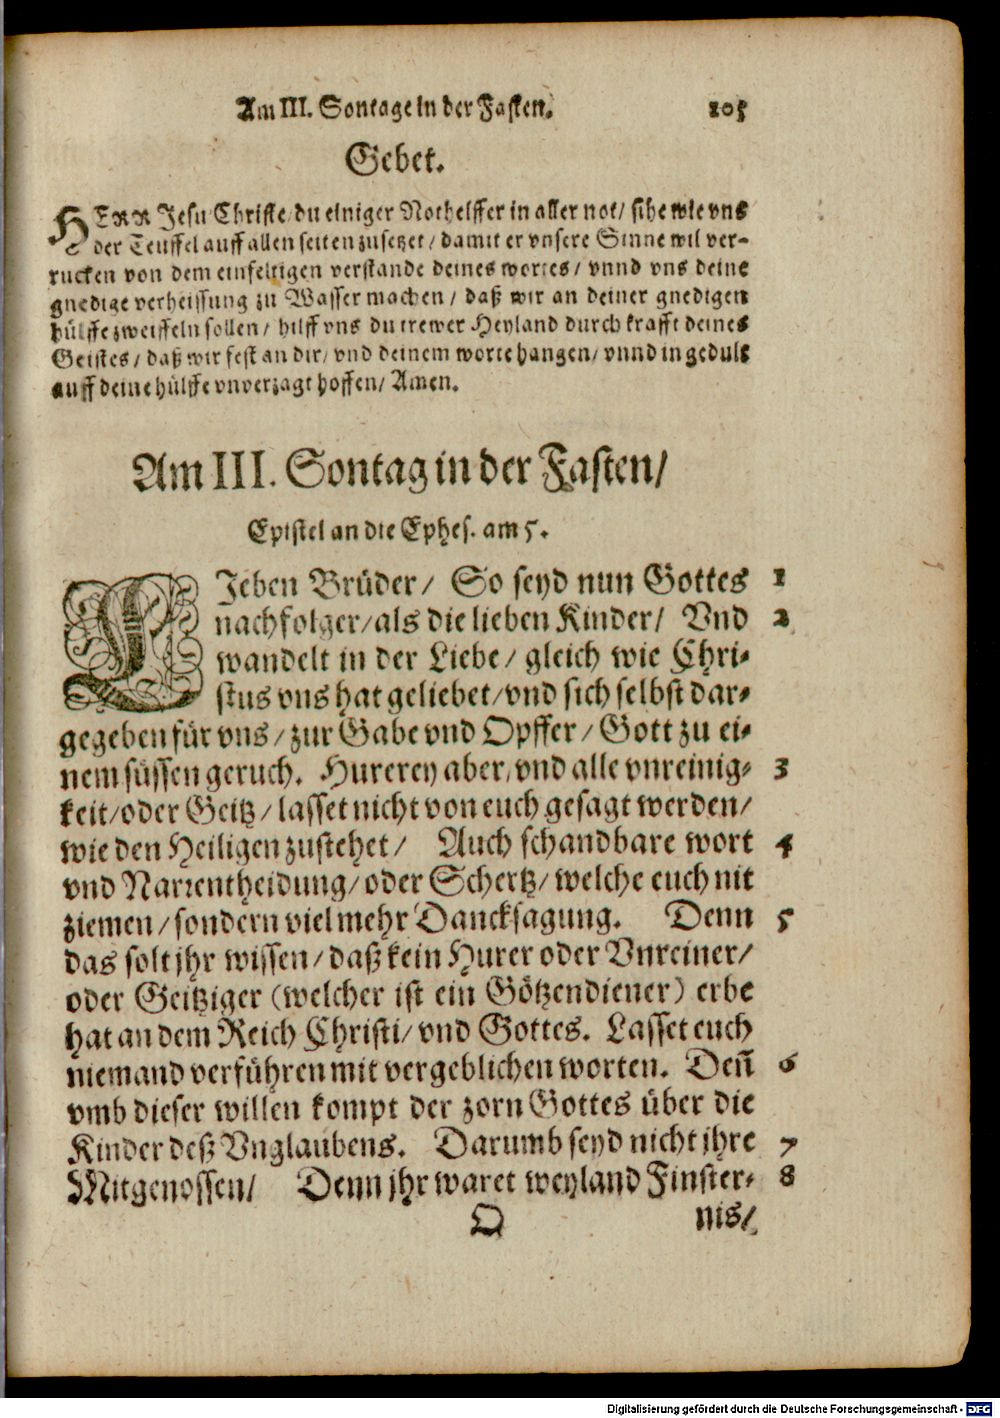 Am III. Sontage in der Fasten. 105
Gebet.
HERR Jesu Christe / du einiger Nothelffer in aller not / sihe wie vns
der Teuffel auff allen seiten zusetzet / damit er vnsere Sinne wil ver-
rucken von dem einfeltigen verstande deines wortes / vnnd vns deine
gnedige verheissung zu Wasser machen / daß wir an deiner gnedigen
hülffe zweiffeln sollen / hilff vns du trewer Heyland durch krafft deines
Geistes / daß wir fest an dir / vnd deinem worte hangen / vnnd in gedult
auff deine hülffe vnverzagt hoffen / Amen.
Am III. Sontag in der Fasten /
Epistel an die Ephes. am 5.
LJeben Brüder / So seyd nun Gottes 1
nachfolger / als die lieben Kinder / Vnd 2
wandelt in der Liebe / gleich wie Chri-
stus vns hat geliebet / vnd sich selbst dar-
gegeben für vns / zur Gabe vnd Opffer / Gott zu ei-
nem süssen geruch. Hurerey aber / vnd alle vnreinig- 3
keit / oder Geitz / lasset nicht von euch gesagt werden /
wie den Heiligen zustehet / Auch schandbare wort 4
vnd Narrentheidung / oder Schertz / welche euch nit
ziemen / sondern viel mehr Dancksagung. Denn 5
das solt jhr wissen / daß kein Hurer oder Vnreiner /
oder Geitziger (welcher ist ein Götzendiener) erbe
hat an dem Reich Christi / vnd Gottes. Lasset euch
niemand verführen mit vergeblichen worten. Deñ 6
vmb dieser willen kompt der zorn Gottes über die
Kinder deß Vnglaubens. Darumb seyd nicht jhre 7
Mitgenossen / Denn jhr waret weyland Finster- 8
O nis /
Digitalisierung gefördert durch die Deutsche Forschungsgemeinschaft - DFG